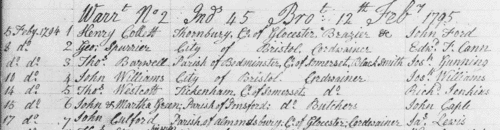 Warrt. No 2 Ind 45 Brot. 12th Feby 1795
5 Feby. 1794 1 Henry Collett Thornbury, C. of Glocester Brazier & John Ford
8 do. 2 Geo: Spurrier City of Bristol, Cordwainer Edwd. T. Cann
do. do. 3 Thos. Bagwell Parish of Bedminster, C. of Somerset, Black Smith Jos: Gunning
10 do. 4 John Williams City of Bristol Cordwainer Jos: Williams
14 do. 5 Thos. Westcott Tickenham, C. of Somerset do. Richd. Jenkins
15 do. 6 John & Martha Green; Parish of Pensford; do. Butchers John Cople
17 do. 7 John Culford Parish of Almondsbury, C. of Glocester; Cordwainer Jas. Lewis